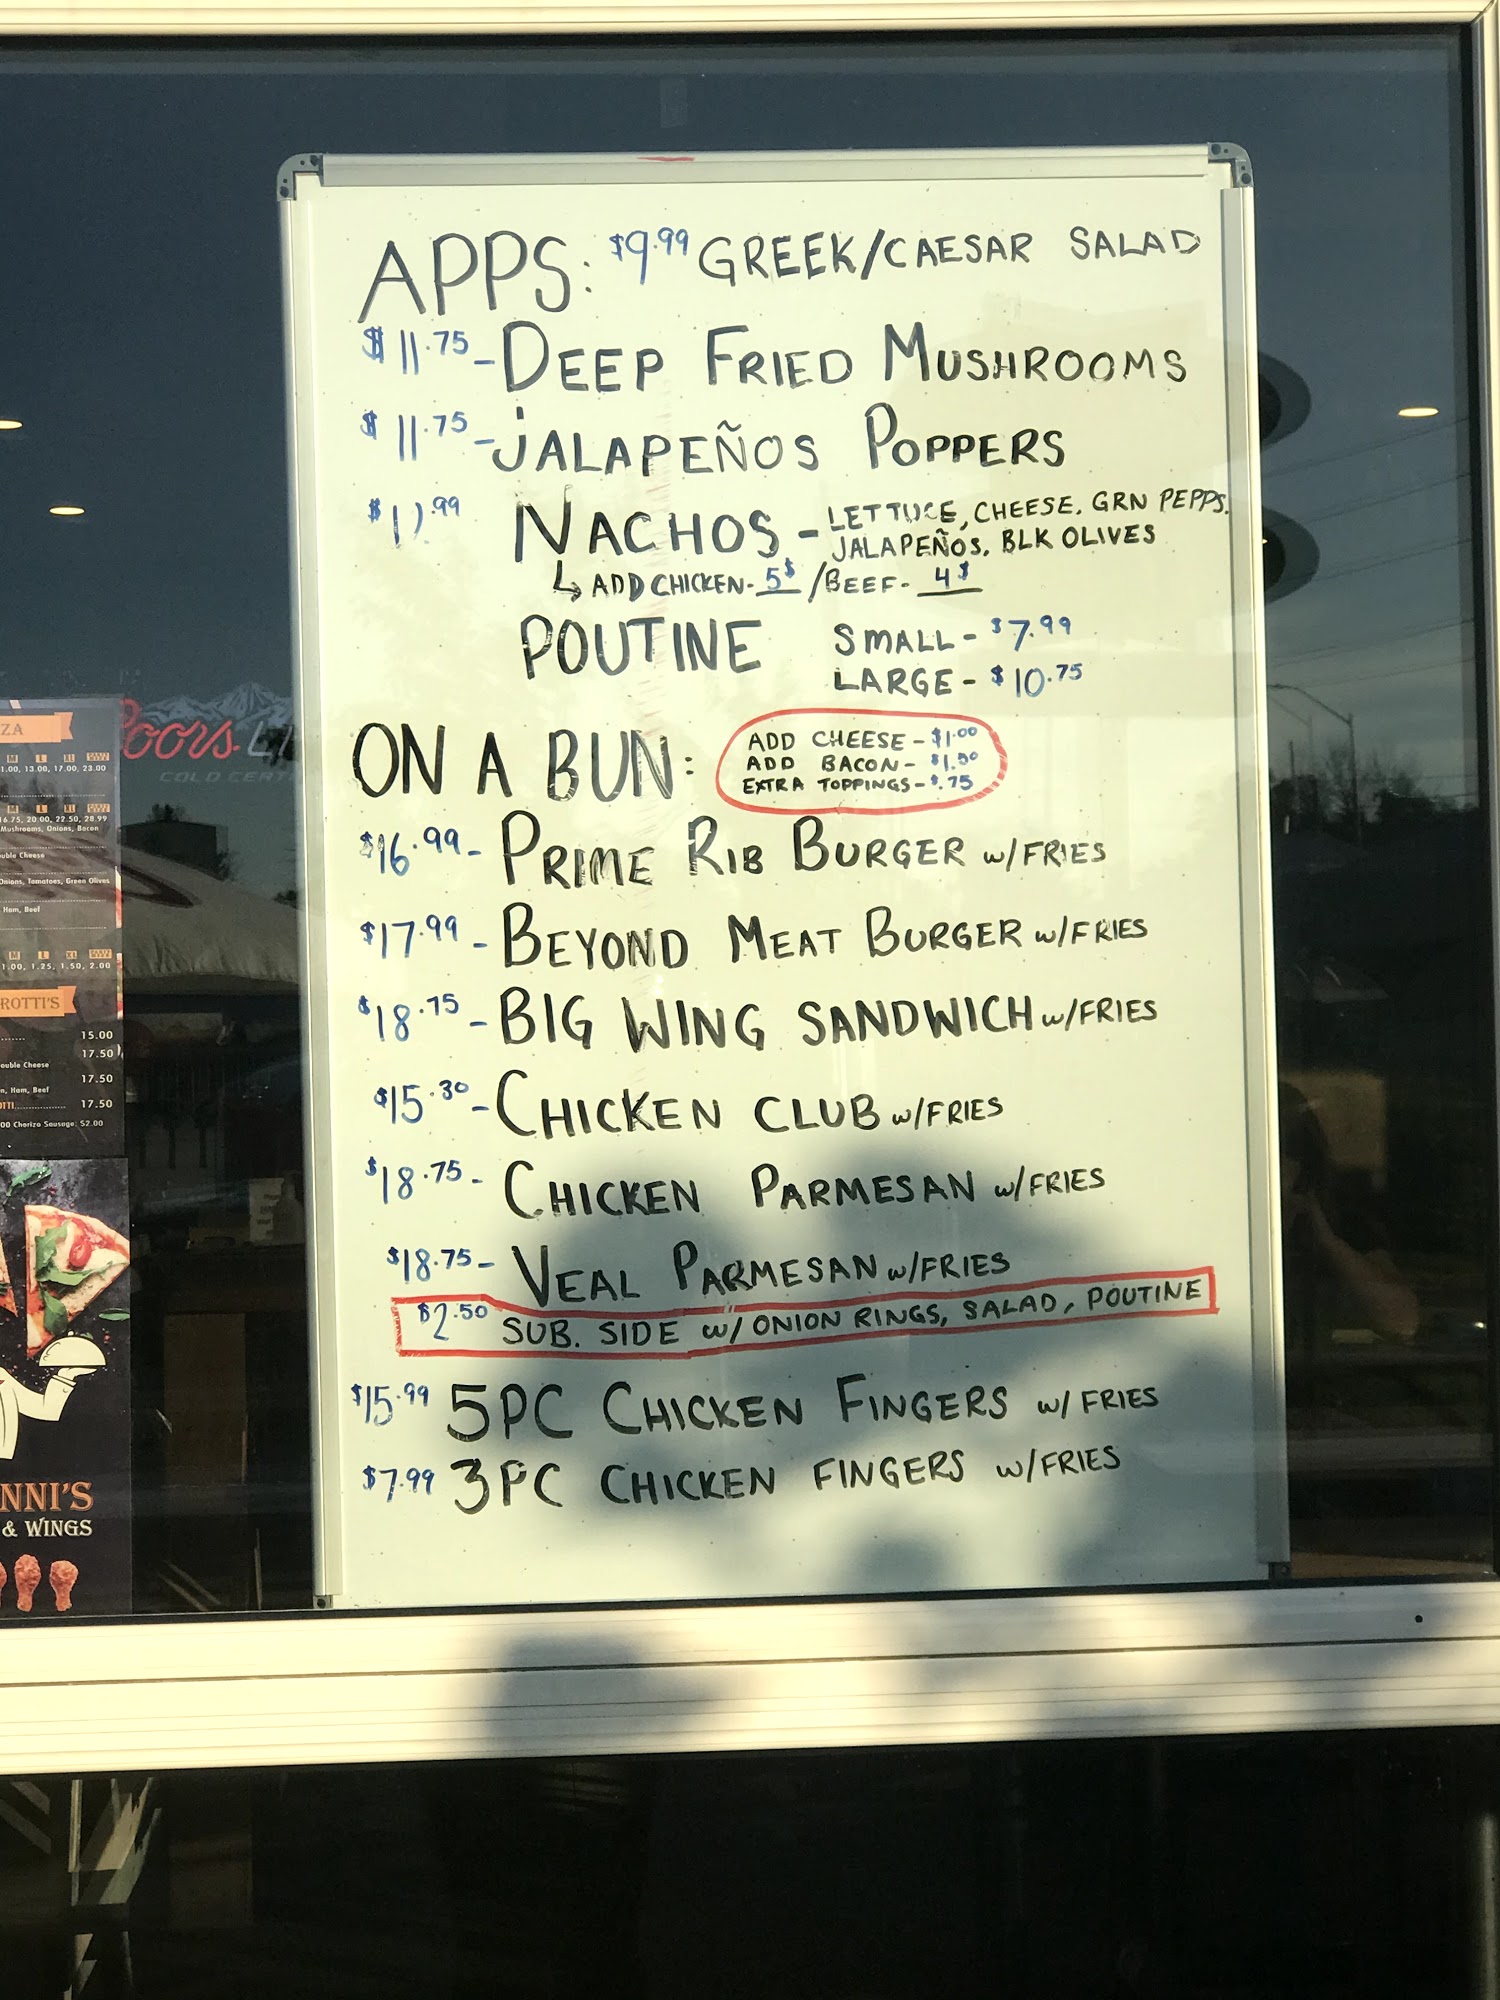 APPS: $9.99 GREEK/CAESAR SALAD
$11.75 - DEEP FRIED MUSHROOMS
$11.75 - JALAPEÑOS POPPERS
$12.99 NACHOS - LETTUCE, CHEESE, GRN PEPPS.
JALAPEÑOS, BLK OLIVES
↳ ADD CHICKEN - 5$ / BEEF - 4$
POUTINE SMALL - $7.99
LARGE - $10.75
ON A BUN:
ADD CHEESE - $1.00
ADD BACON - $1.50
EXTRA TOPPINGS - $.75
$16.99 - PRIME RIB BURGER w/FRIES
$17.99 - BEYOND MEAT BURGER w/FRIES
$18.75 - BIG WING SANDWICH w/FRIES
$15.30 - CHICKEN CLUB w/FRIES
$18.75 - CHICKEN PARMESAN w/FRIES
$18.75 - VEAL PARMESAN w/FRIES
$2.50 SUB. SIDE w/ ONION RINGS, SALAD, POUTINE
$15.99 5PC CHICKEN FINGERS w/ FRIES
$7.99 3PC CHICKEN FINGERS w/FRIES
Coors LI
COLD CERT
ZA
M L XL
1.00, 13.00, 17.00, 23.00
M L XL
16.75, 20.00, 22.50, 28.99
Mushrooms, Onions, Bacon
ouble Cheese
Onions, Tomatoes, Green Olives
Ham, Beef
M L XL
1.00, 1.25, 1.50, 2.00
ROTTI'S
15.00
17.50
ouble Cheese
17.50
n, Ham, Beef
TTI 17.50
00 Chorizo Sausage: $2.00
NNI'S
& WINGS